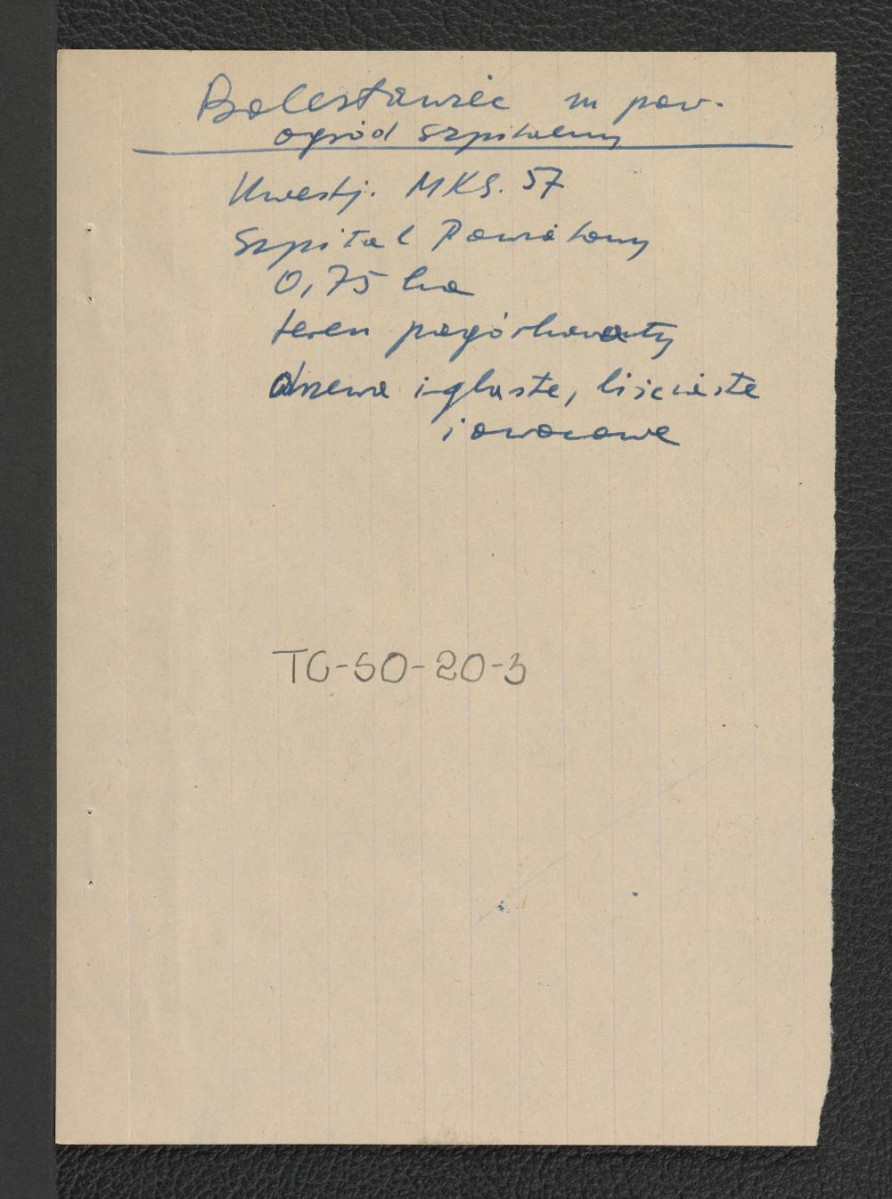 Bolesławiec m pow.
ogród szpitalny
Kwestj. MKS. 57
Szpital Powiatowy
0,75 ha
teren pagórkowaty
drzewa iglaste, liściaste
i owocowe
TG-50-20-3